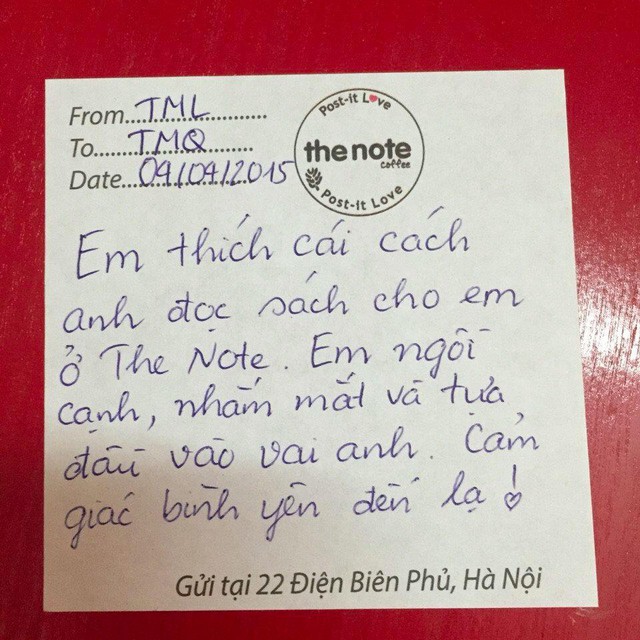 From...TML................
To.....TMQ............
Date...04/04/2015
Post-it Love
the note
coffee
Post-it Love
Em thích cái cách
anh đọc sách cho em
ở The Note. Em ngồi
cạnh, nhắm mắt và tựa
đầu vào vai anh. Cảm
giác bình yên đến lạ!
Gửi tại 22 Điện Biên Phủ, Hà Nội